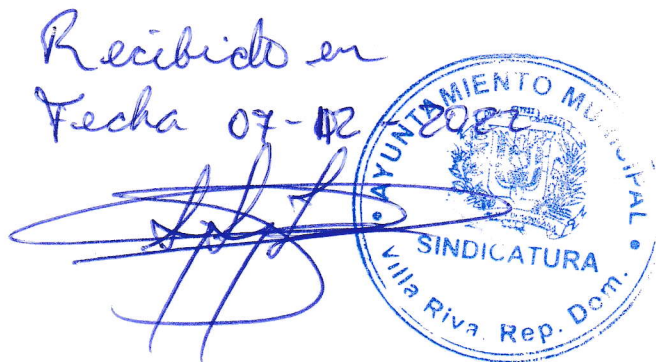 Recibido en
Fecha 07-12-2022
AYUNTAMIENTO MUNICIPAL
SINDICATURA
Villa Riva, Rep. Dom.